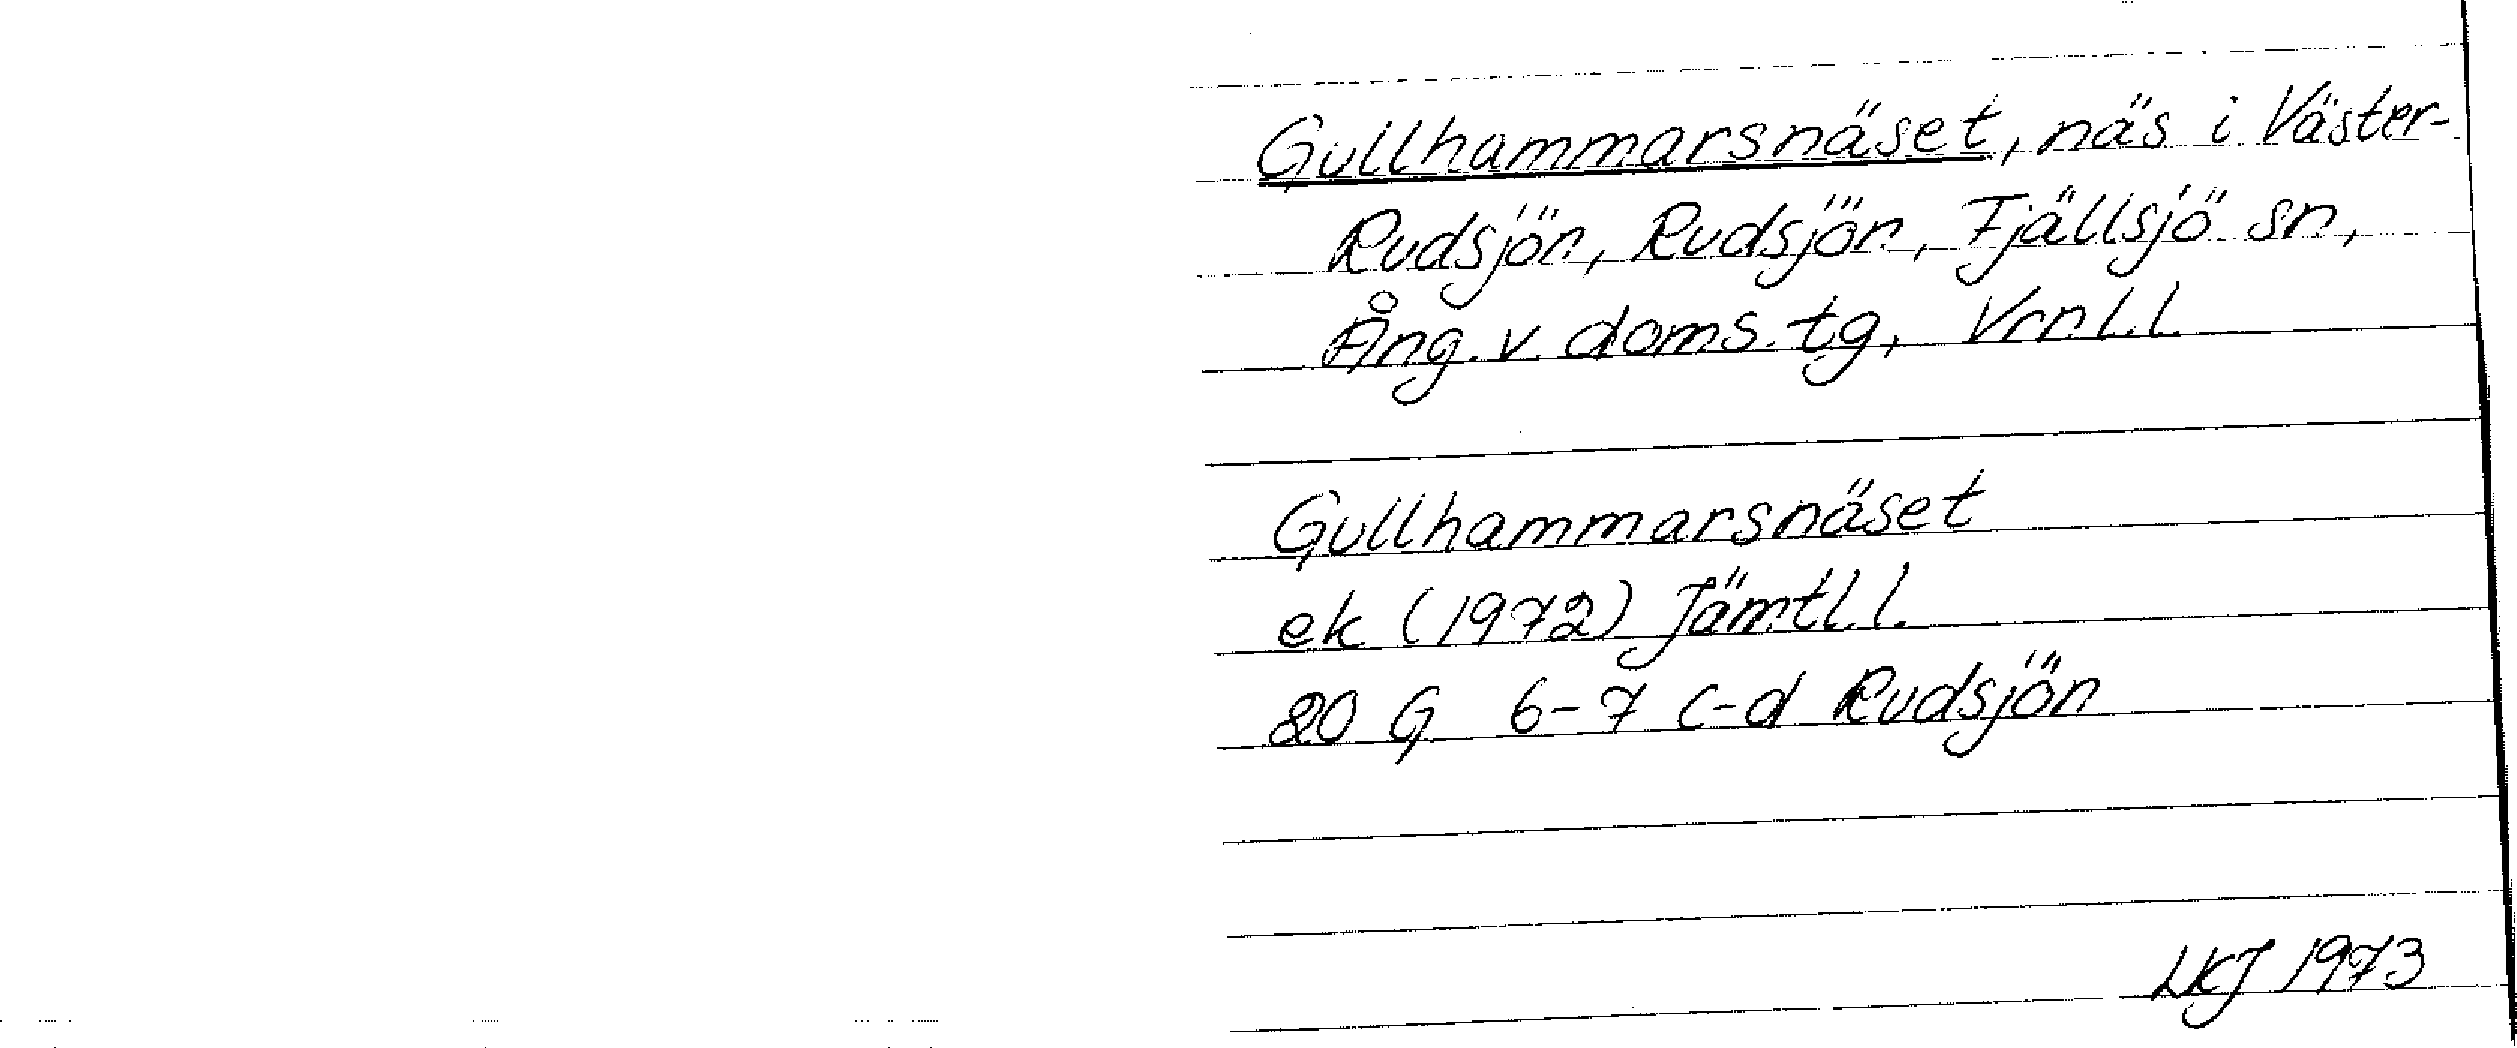 Gullhammarsnäset, näs i Väster-
Rudsjön, Rudsjön, Fjällsjö sn,
Ång. v. doms. tg, Vrnl.l.
Gullhammarsnäset
ek (1972) Jämtl.l.
20 G 6-7 c-d Rudsjön
LKJ 1973